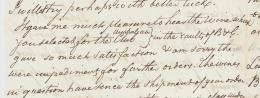 I will try perhaps with better luck.
It gave me much pleasure to hear the wine which
you selected for the Club in the vaults of B & C.
gave so much satisfaction I am sorry the
were impediments for further orders. The wines
in question have since the shipment of your order